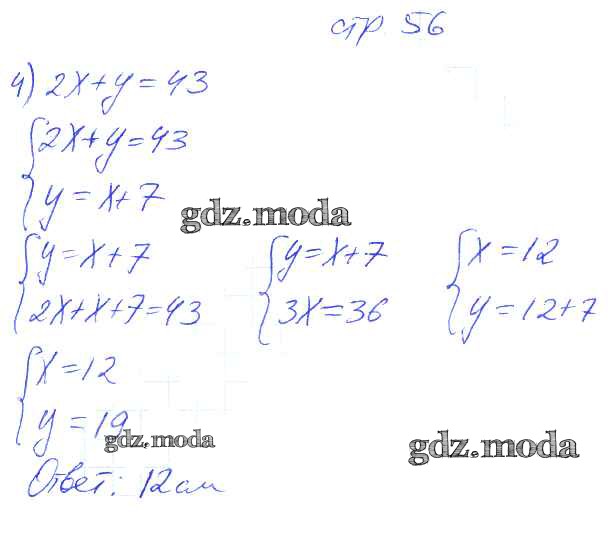 стр. 56
4) 2x+y=43
{2x+y=43
y=x+7
gdz.moda
{y=x+7
2x+x+7=43
{y=x+7
3x=36
{x=12
y=12+7
{x=12
y=19
gdz.moda
gdz.moda
Ответ: 12см